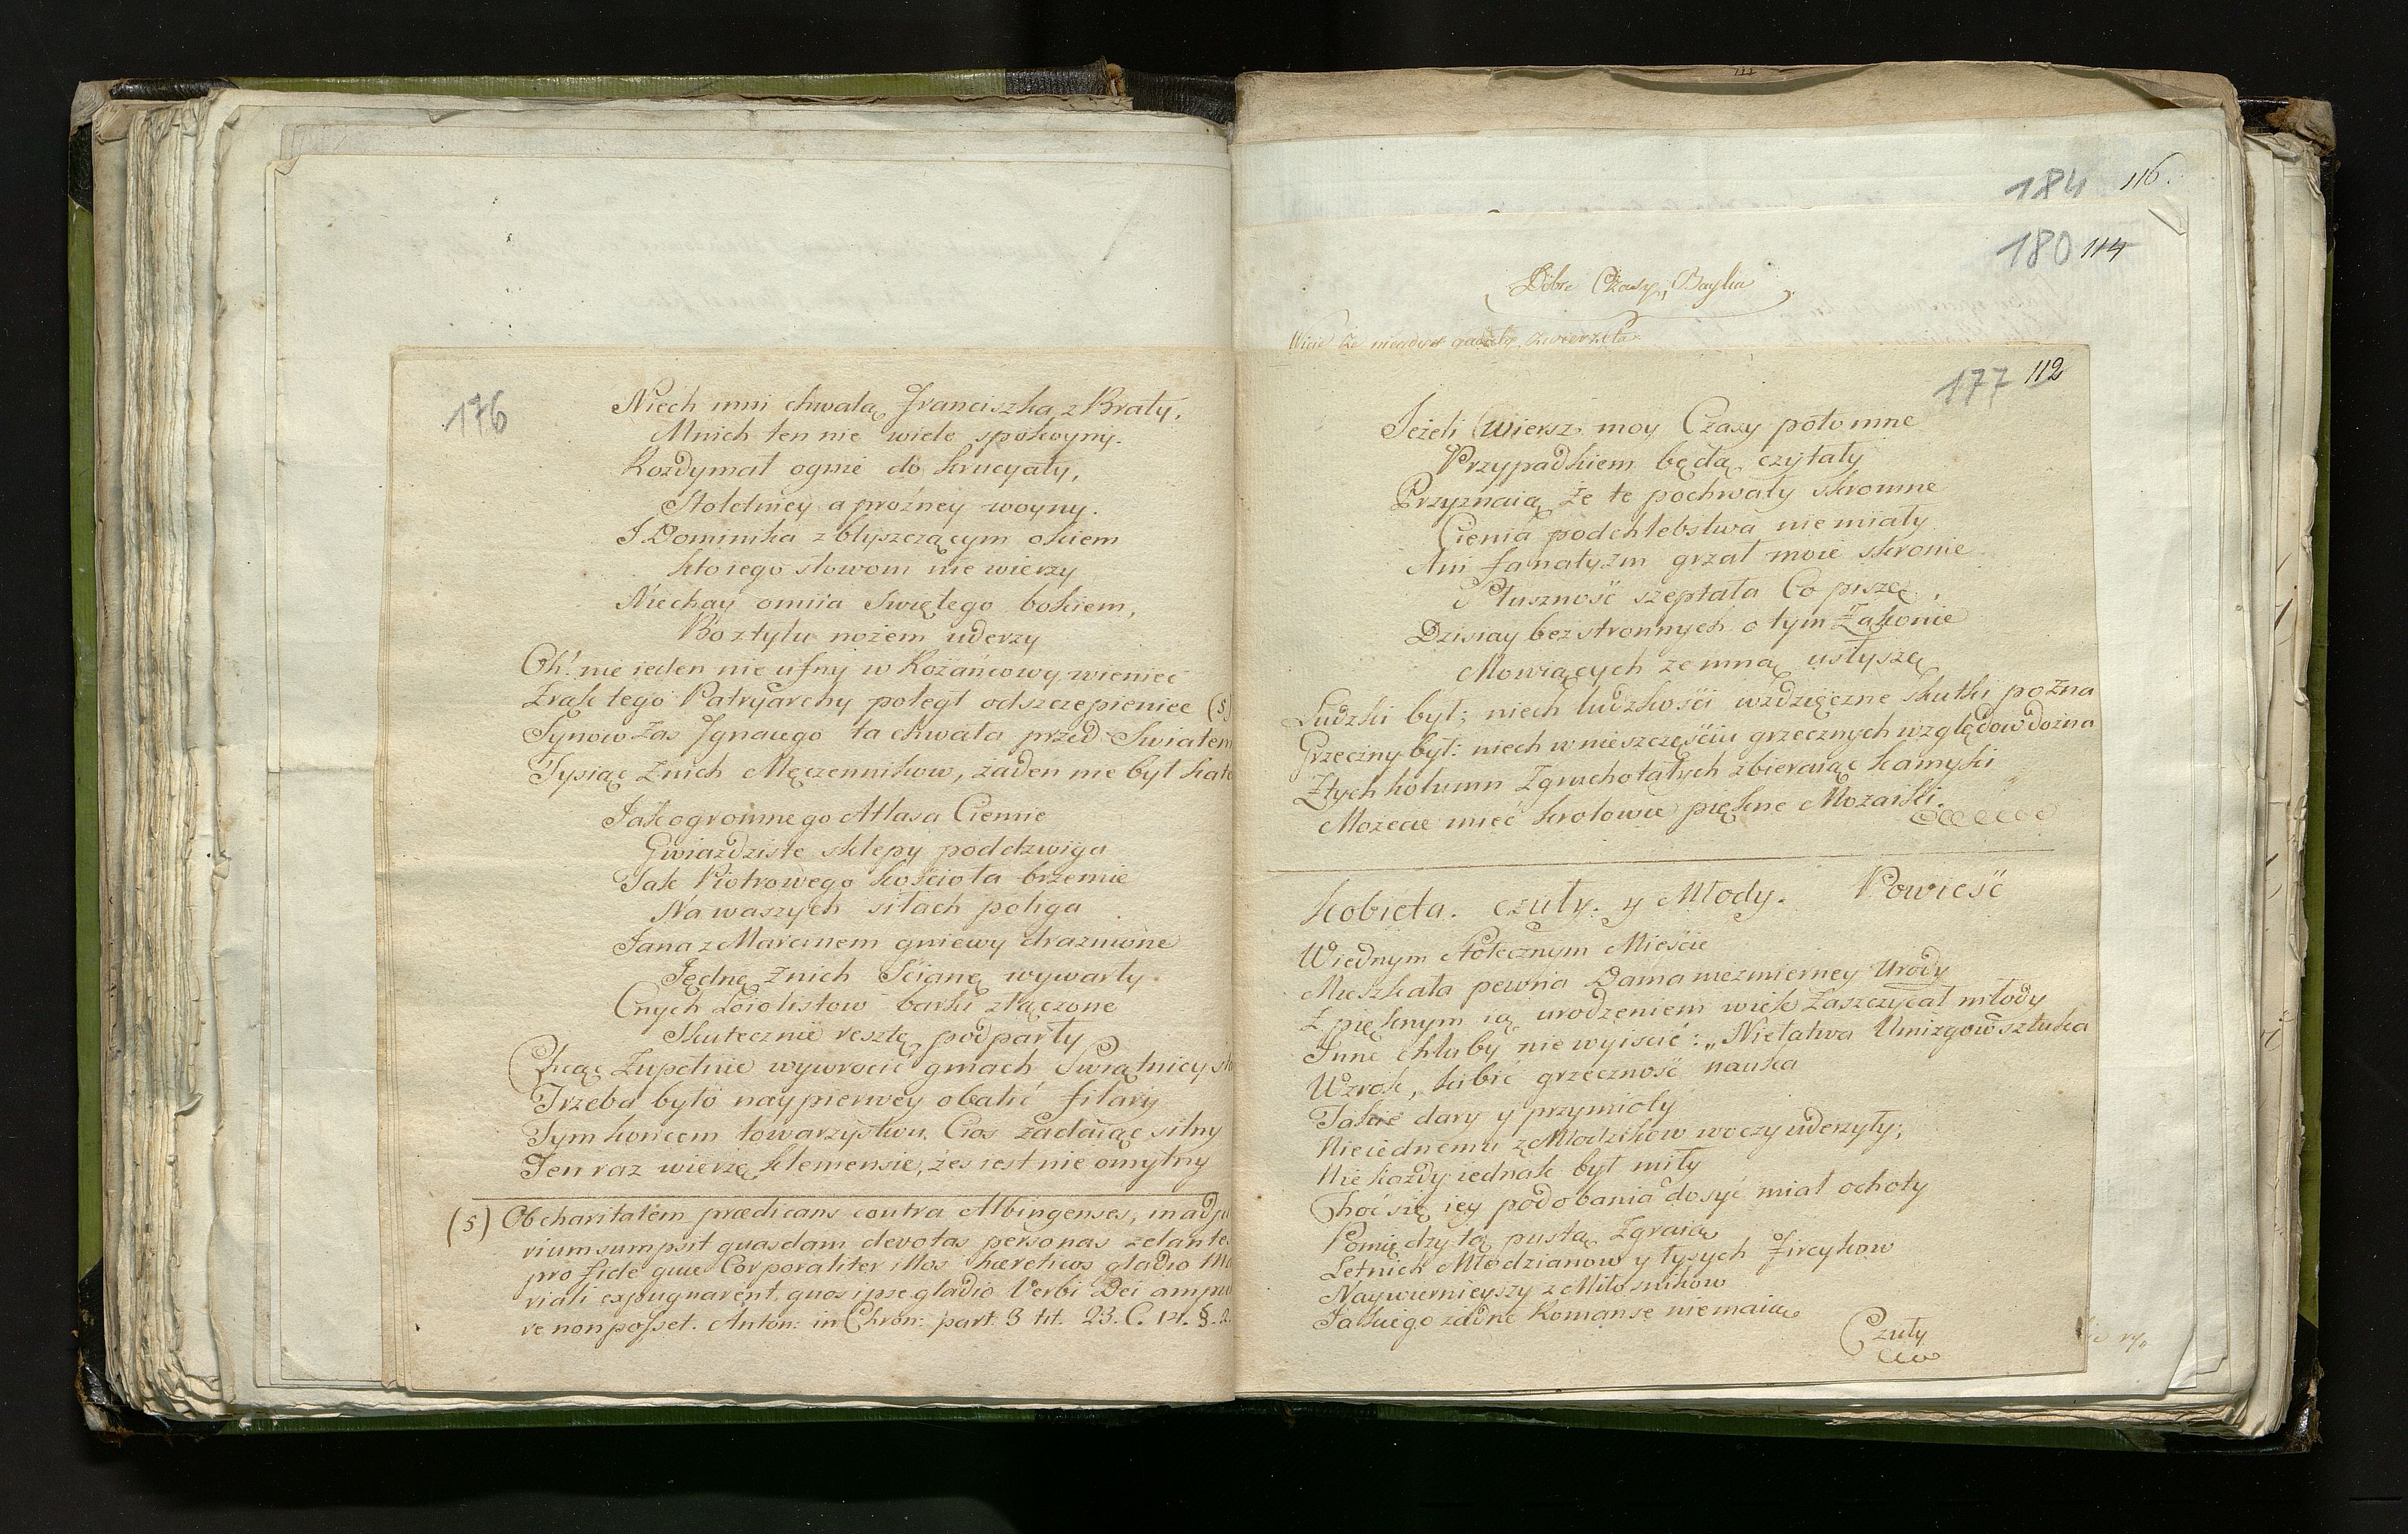 176
Niech inni chwalą Franciszka z Braty,
Mnich ten nie wiele spokoyny.
Rozdymał ognie do krucyaty,
Stoletniey a prożney woyny.
I Dominika z błyszczącym okiem
kto iego słowom nie wierzy
Niechay omiia Swiętego bokiem,
Bo z tyłu nożem uderzy
Oh! nie ieden nie ufny w Rożańcowy wieniec
Z rąk tego Patryarchy poległ odszczepieniec (5)
Synow zas Ignacego ta chwała przed Swiatem
Tysiąc z nich Męczennikow, żaden nie był kate
Jak ogromnego Atlasa Ciemie
Gwiaździste sklepy poddzwiga
Tak Piotrowego kościoła brzemie
Na waszych siłach poliga
Jana z Marcinem gniewy draznione
Jednę z nich Scianę wywarły.
Cnych Loiolistow barki złączone
Skutecznie resztę podparły
Chcąc zupełnie wywrocić gmach Swiątnicy
Trzeba było naypierwey obalić filary
Tym końcem towarzystwu Cios zadaiąc silny
Ten raz wierzę klemensie, żes iest nie omylny
(5) Ob charitatem prædicans contra Albingenses, in adju
rium sumpsit quasdam devotas personas zelante
pro fide quæ Corporaliter illos hæreticos gladio Ma
riali expugnarent, quos ipse gladio Verbi Dei ampu
re non posset. Anton: in Chron: part. 3 tit. 23. C. 14. §. 2.
184 116.
180 114
Dobre Czasy, Bayka
Wiecie że niegdyś gadały zwierzęta
177 112
Jeżeli wiersz moy Czasy potomne
Przypadkiem będą czytały
Przyznaią że te pochwały skromne
Cienia podchlebstwa nie miały
Ani fanatyzm grzał moie skronie
Słuszność szeptała Co piszę,
Dzisiay bezstronnych o tym Zakonie
Mowiących ze mną usłyszę
Ludzki był; niech ludzkości wzdzięczne skutki pozna
Grzeczny był: niech w nieszczęściu grzecznych względow dozna
Z tych kolumn zgruchotałych zbieraiąc kamyki
Możecie mieć krolowie piękne Mozaiki.
kobieta. czuły. y Młody. Powieść
W iednym Stołecznym Mieście
Mieszkała pewna Dama niezmierney Urody
Z pięknym ią urodzeniem wiek zaszczycał młody
Inne chluby nie wyiscić: „Niełatwa Umizgow sztuka
Wzrok, kibić grzeczność nauka
Takie dary y przymioty
Nieiednemu z Młodzikow w oczy uderzyły;
Nie każdy iednak był miły
Choć się iey podobania dosyć miał ochoty
Pomiędzy tą pustą zgraią
Letnich Młodzianow y łysych fircykow
Naywiernieyszy z Miłosnikow
Jakiego żadne Romanse nie maią
Czuły